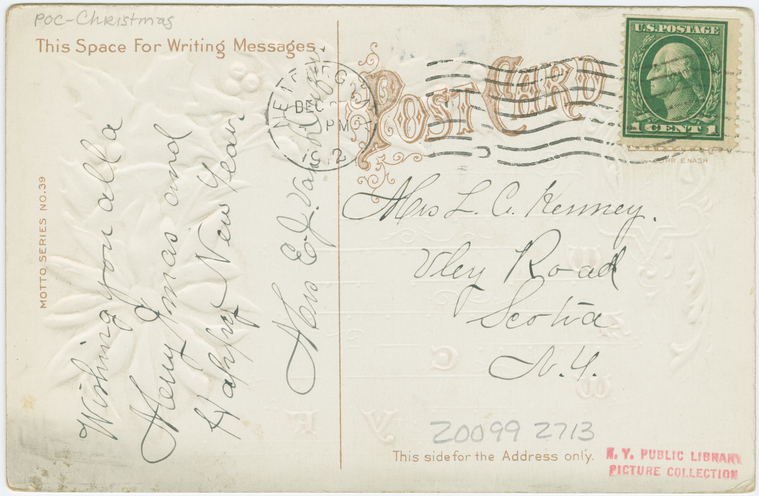 POC-Christmas
This Space For Writing Messages
POST CARD
U.S. POSTAGE
1 CENT 1
DEC
PM
1912
MOTTO SERIES NO. 39
Wishing you all a
Merry Xmas and
Happy New Year
Mrs E. J. Van
Mrs L. A. Kenney.
Vley Road
Scotia
N.Y.
20099 2713
This side for the Address only.
N. Y. PUBLIC LIBRARY
PICTURE COLLECTION